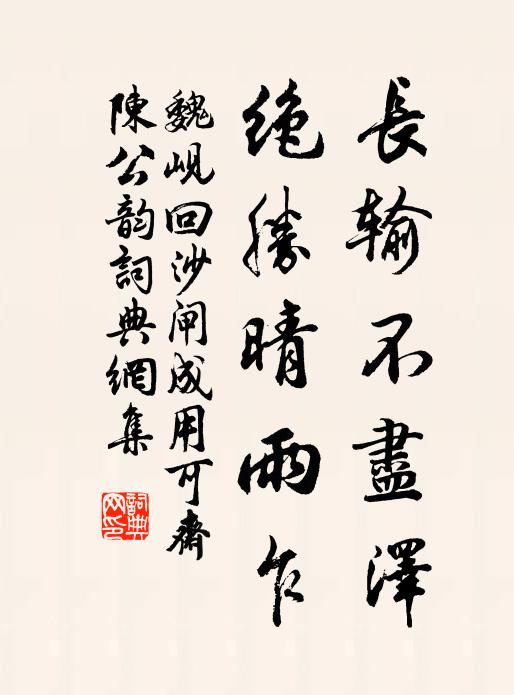 長輸不盡澤
絶勝晴雨乍
魏峴回沙閘成用可齋
陳公韵詞典網集
詞典網印